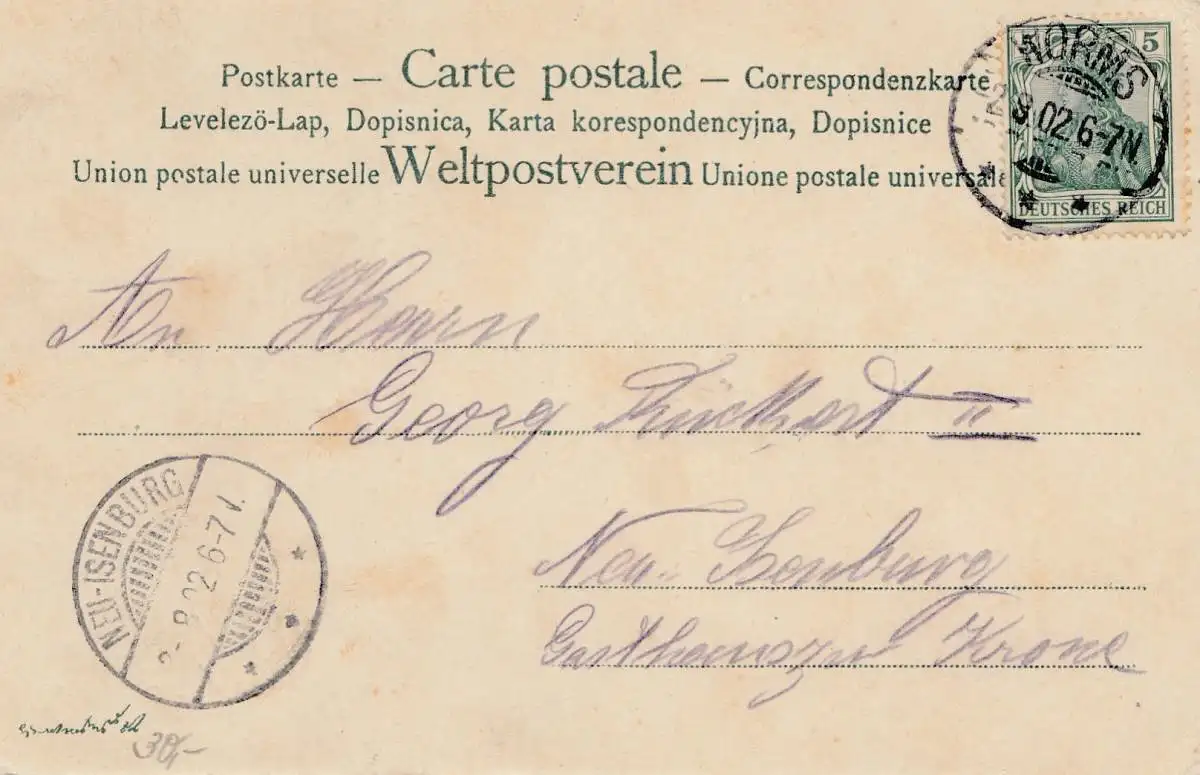 Postkarte — Carte postale — Correspondenzkarte
Levelezö-Lap, Dopisnica, Karta korespondencyjna, Dopisnice
Union postale universelle Weltpostverein Unione postale universale
5
WORMS
8.02.6-7N.
DEUTSCHES REICH
An Herrn
Georg Rückhart II
Neu-Isenburg
Gasthaus zu Krone
NEU-ISENBURG
2 8 02 6-7N.
30,-